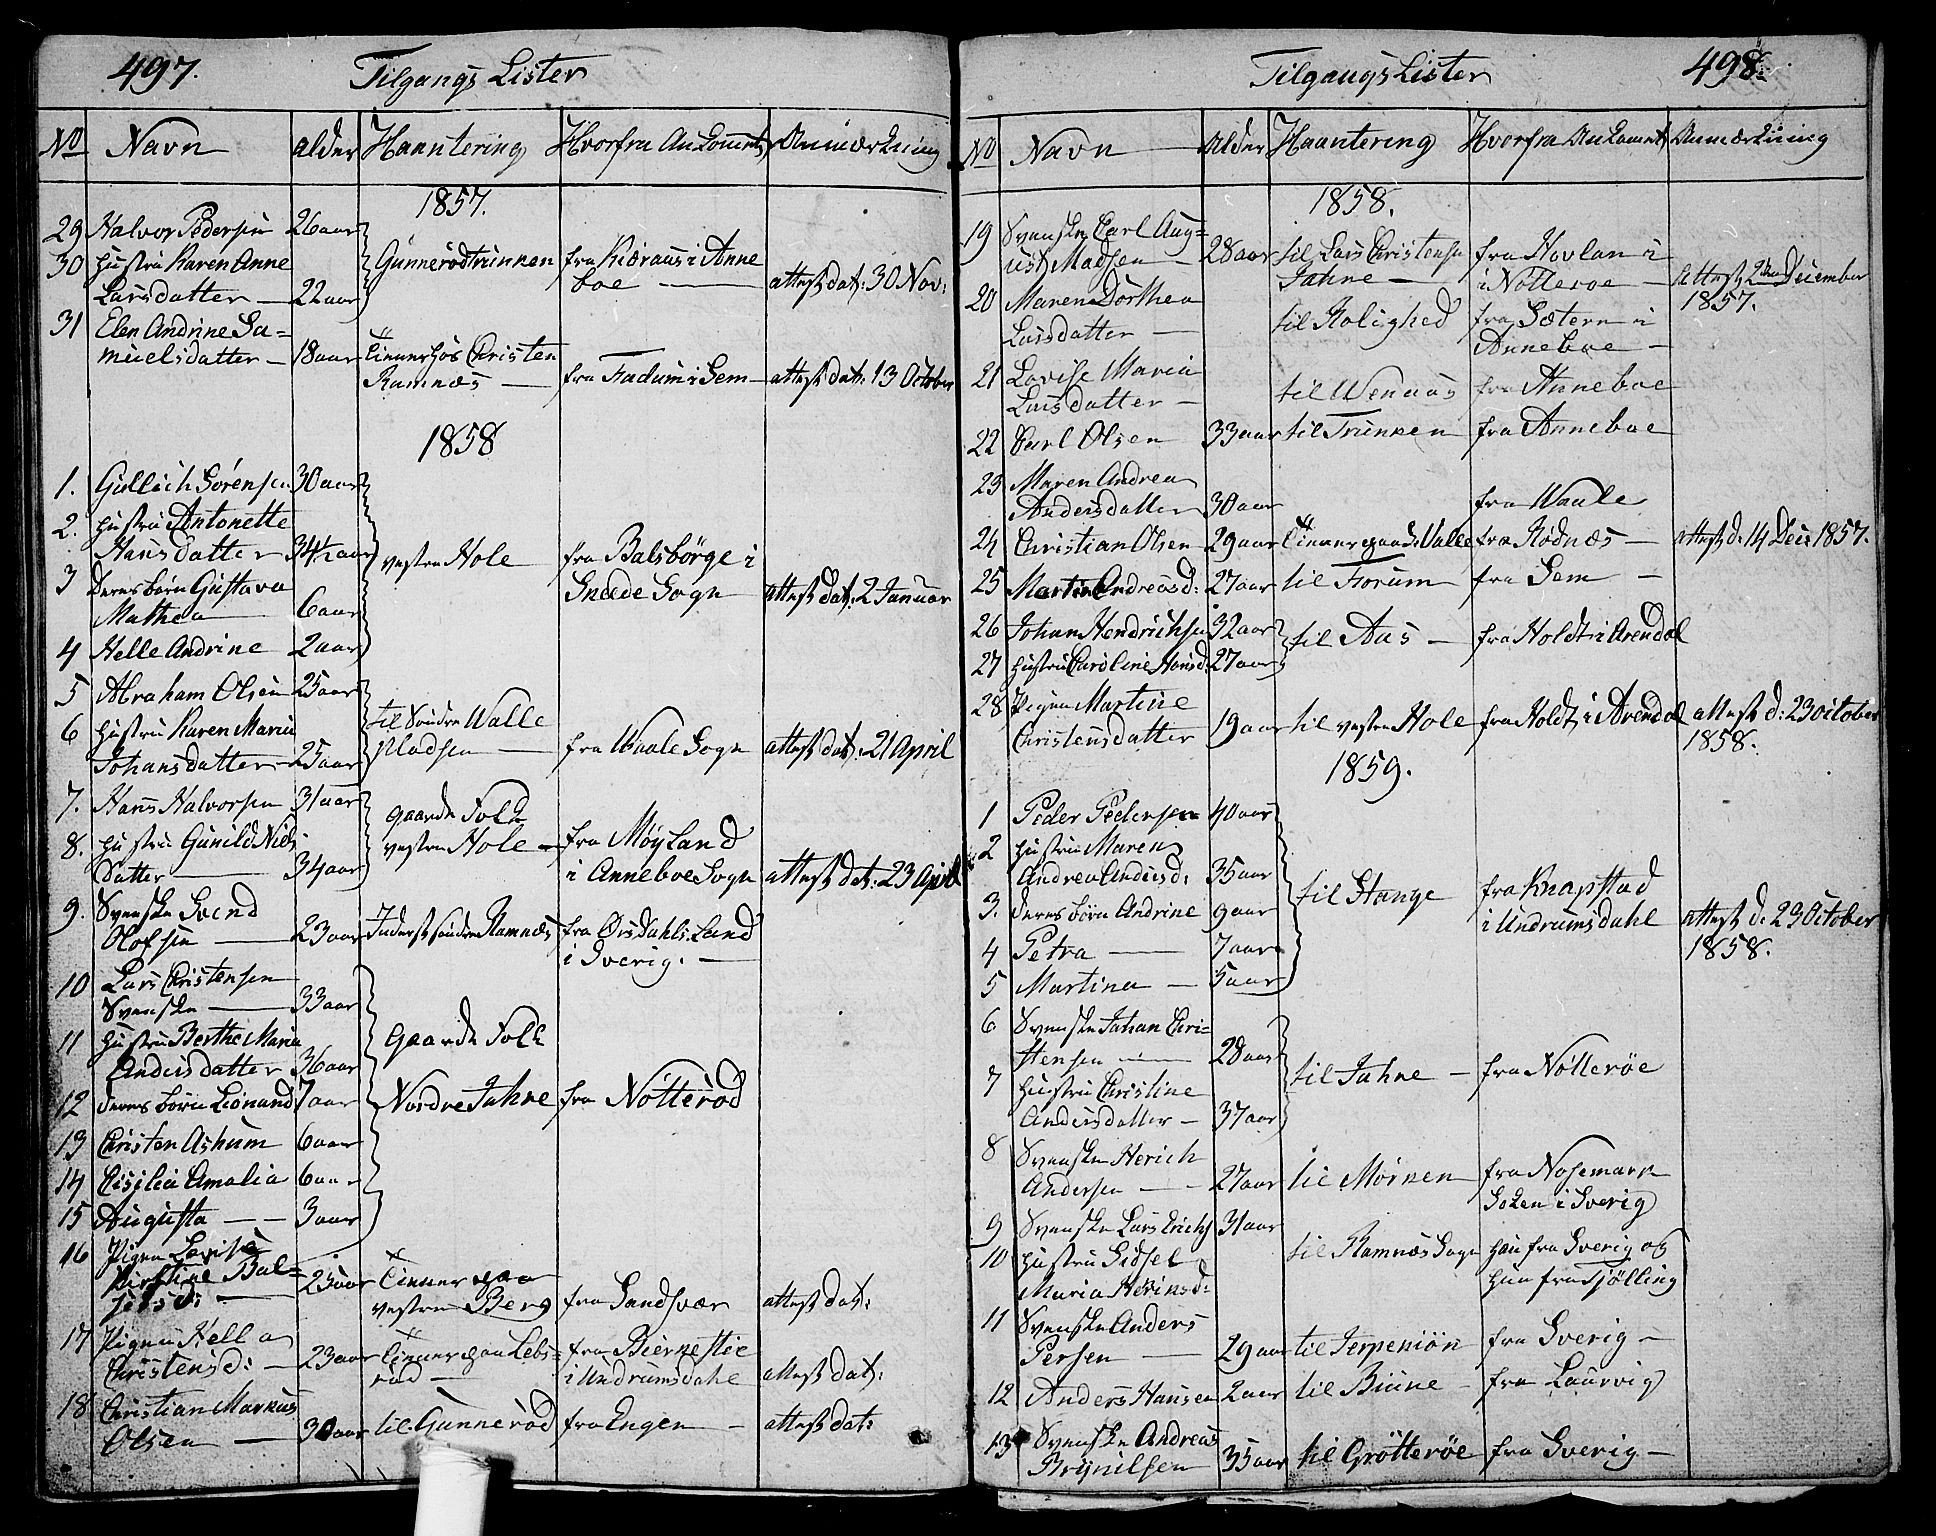 497. Tilgangs Lister
No Navn alder Haantering Hvorfra Ankomne Anmærkning
1857.
29 Halvor Pedersen 26 aar
30 hustru Karen Anne Gunnerødtrinnen fra Kiæraas i Anne
Larsdatter — 22 aar boe — attest dat: 30 Nov:
31 Elen Andrine Sa=
muelsdatter — 18 aar tienner hos Christen
Ramnæs — fra Fadum i Sem — attest dat: 13 October
1858
1. Gullich Sørensen 30 aar
2. hustru Antonette
Hansdatter 34½ aar vestre Hole fra Balsbørge i
3 deres børn Gustava Snede Sogn attest dat: 2 Januar
Mathea — 6 aar
4 Helle Andrine 2 aar
5 Abraham Olsen 25 aar
6 hustru Karen Maria til Søndre Walle
Johansdatter — 25 aar Pladsen — fra Waale Sogn attest dat: 21 April
7. Hans Halvorsen 31 aar gaarde Folk
8. hustru Gunild Niels vestre Hole — fra Møyland
datter — 34 aar i Anneboe Sogn attest dat: 23 April
9. Svenske Svend
Olofsen — 23 aar Inderst søndre Ramnæs fra Ørsdahls Land
i Sverig. —
10 Lars Christensen
Svenske — 33 aar
11 hustru Berthe Maria gaarde Folk
Andersdatter 36 aar
12 deres børn Leonard 7 aar Nordre Jahre fra Nøtterød
13 Christen Ashum 6 aar
14 Cisilia Amalia 6 aar
15 Augusta — — 3 aar
16 Pigen Lovise
Kirstine Bal= 23 aar tienner paa
— vestre Berg fra Sandsvær attest dat:
17 Pigen Hella
Christensd: — 23 aar tienner paa Lebs= fra Bierne Stie
rød — i Undrumsdahl attest dat:
18 Christian Markus
Olsen — 30 aar til Gunnerød fra Engen — attest dat:
Tilgangs Lister 498.
No Navn Alder Haantering Hvorfra Ankomne Anmærkning
1858.
19 Svenske Carl Aug=
ust Madsen — 28 aar til Lars Christensen fra Hovlan i
Jahre — i Nøtteroe — Attest 2den December
1857.
20 Maren Dorthea
Larsdatter — til Rolighed fra Sætern i
Anneboe —
21 Lovise Maria
Larsdatter — til Wenaas fra Anneboe
22 Carl Olsen 33 aar til Trinnen fra Anneboe
23 Maren Andrea
Andersdatter 30 aar fra Waale
24 Christian Olsen 29 aar tienner paa S: Valle fra Rødnæs — attest d. 14 Dec: 1857.
25 Martin Andreasd: 27 aar til Forum fra Sem —
26 Johan Hendrichsen 32 aar
til Aas — fra Holdt i Arendal
27 hustru Caroline Hansd: 27 aar
28 Pigen Martine
Christensdatter 19 aar til vestre Hole fra Holdt i Arendal attest d: 23 october
1858.
1859.
1 Peder Pedersen 40 aar
2 hustru Maren
Andrea Andersd: 35 aar
3. deres børn Andrine 9 aar til Stange fra Knapstad
i Undrumsdahl attest d: 23 October
1858.
4 Petra — 7 aar
5 Martina — 5 aar
6 Svenske Johan Chri=
stensen — 28 aar
til Jahre — fra Nøtterøe
7 hustru Christine
Andersdatter — 37 aar
8 Svenske Herich
Andersen — 27 aar til Mørken fra Nosemark
Soken i Sverig
9 Svenske Lars Erichs 31 aar
10 hustru Sidsel til Ramnæs Sogn han fra Sverig og
Maria hun fra Tjølling
11 Svenske Anders
Persen — 29 aar til Jerpeniøn fra Sverig —
12 Anders Hansen 2 aar til Biune — fra Laurvig
13 Svenske Andreas
Brynilsen 35 aar til Grøtterøe fra Sverig —